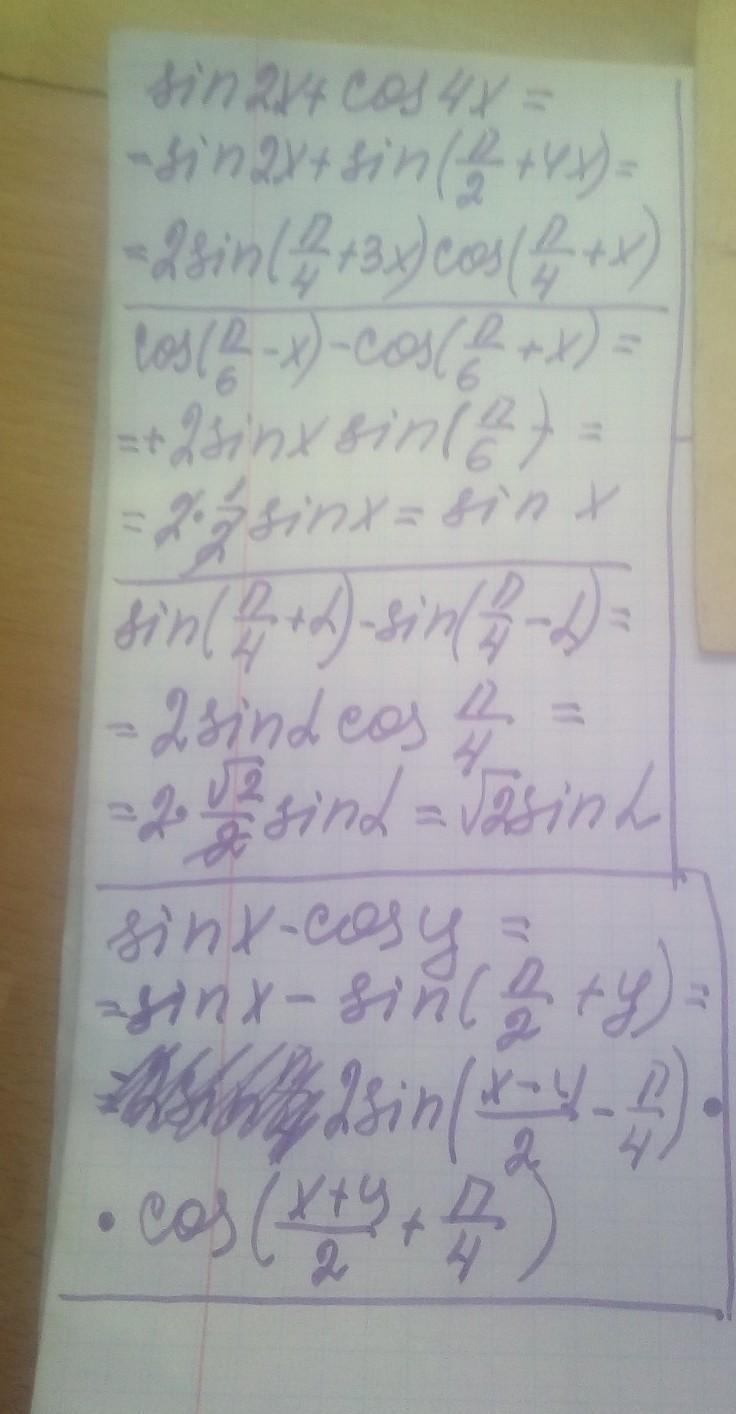 sin2x+cos4x=
=sin2x+sin(π/2+4x)=
=2sin(π/4+3x)cos(π/4+x)
cos(π/6-x)-cos(π/6+x)=
=+2sinx sin(π/6)=
=2·1/2sinx=sin x
sin(π/4+α)-sin(π/4-α)=
=2sinα cos π/4 =
=2·√2/2 sinα=√2sinα
sinx-cosy=
=sinx-sin(π/2+y)=
= 2sin((x-y)/2-π/4)·
·cos((x+y)/2+π/4)